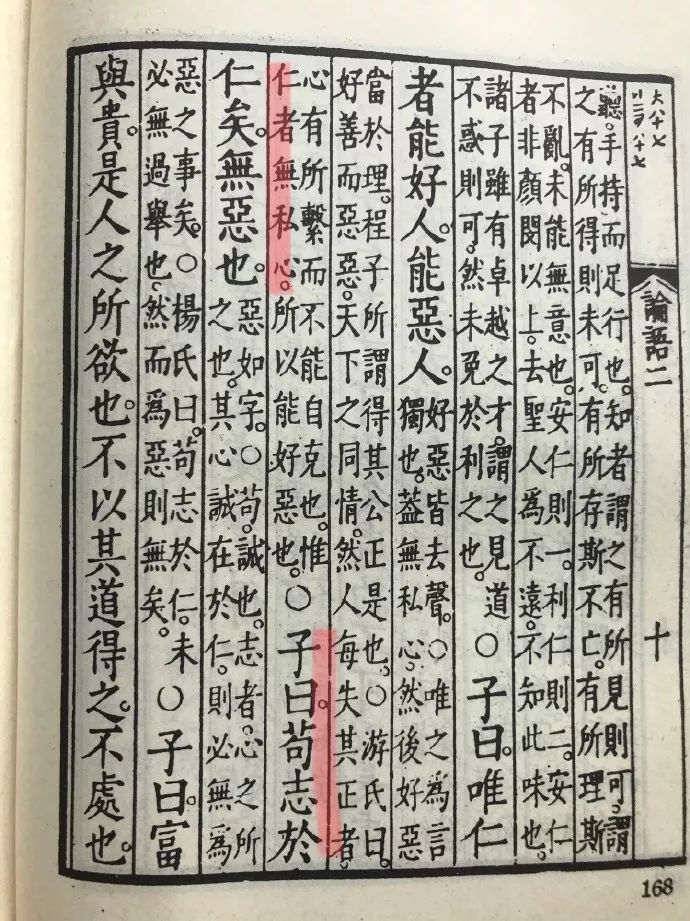 論語二
十
聽。手持而足行也。知者謂之有所見則可。謂
之有所得則未可。有所存斯不亡。有所理斯
不亂。未能無意也。安仁則一。利仁則二。安仁
者非顏閔以上。去聖人為不遠。不知此味也。
諸子雖有卓越之才。謂之見道
不惑則可。然未免於利之也。
○子曰。唯仁
者能好人。能惡人。
好惡皆去聲。○唯之為言
獨也。蓋無私心。然後好惡
當於理。程子所謂得其公正是也。○游氏曰。
好善而惡惡。天下之同情。然人每失其正者。
心有所繫而不能自克也。惟
仁者無私心。所以能好惡也。
○子曰。苟志於
仁矣。無惡也。
惡如字。○苟。誠也。志者。心之所
之也。其心誠在於仁。則必無為
惡之事矣。○楊氏曰。苟志於仁。未
必無過舉也。然而為惡則無矣。
○子曰。富
與貴是人之所欲也。不以其道得之。不處也。
168